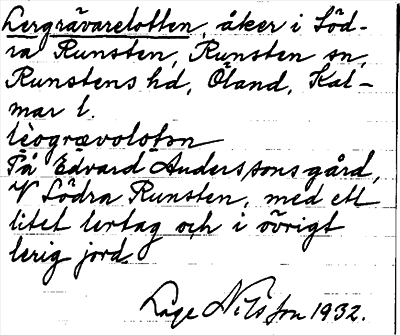 Lergrävarelotten, åker i Söd-
ra Runsten, Runsten sn,
Runstens hd, Öland, Kal-
mar l.
På Edvard Anderssons gård,
V Södra Runsten, med ett
litet lertag och i övrigt
lerig jord
Låge Nilsson 1932.